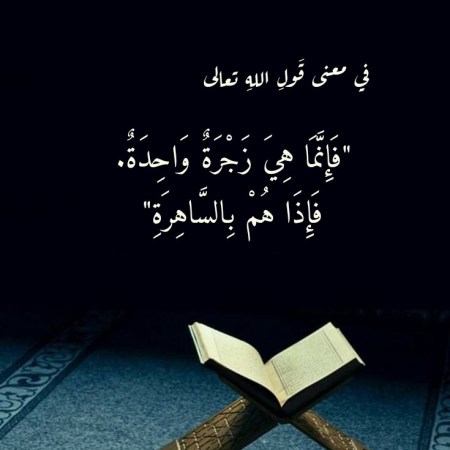 في معنى قَولِ اللهِ تعالى
"فَإِنَّمَا هِيَ زَجْرَةٌ وَاحِدَةٌ.
فَإِذَا هُمْ بِالسَّاهِرَةِ"